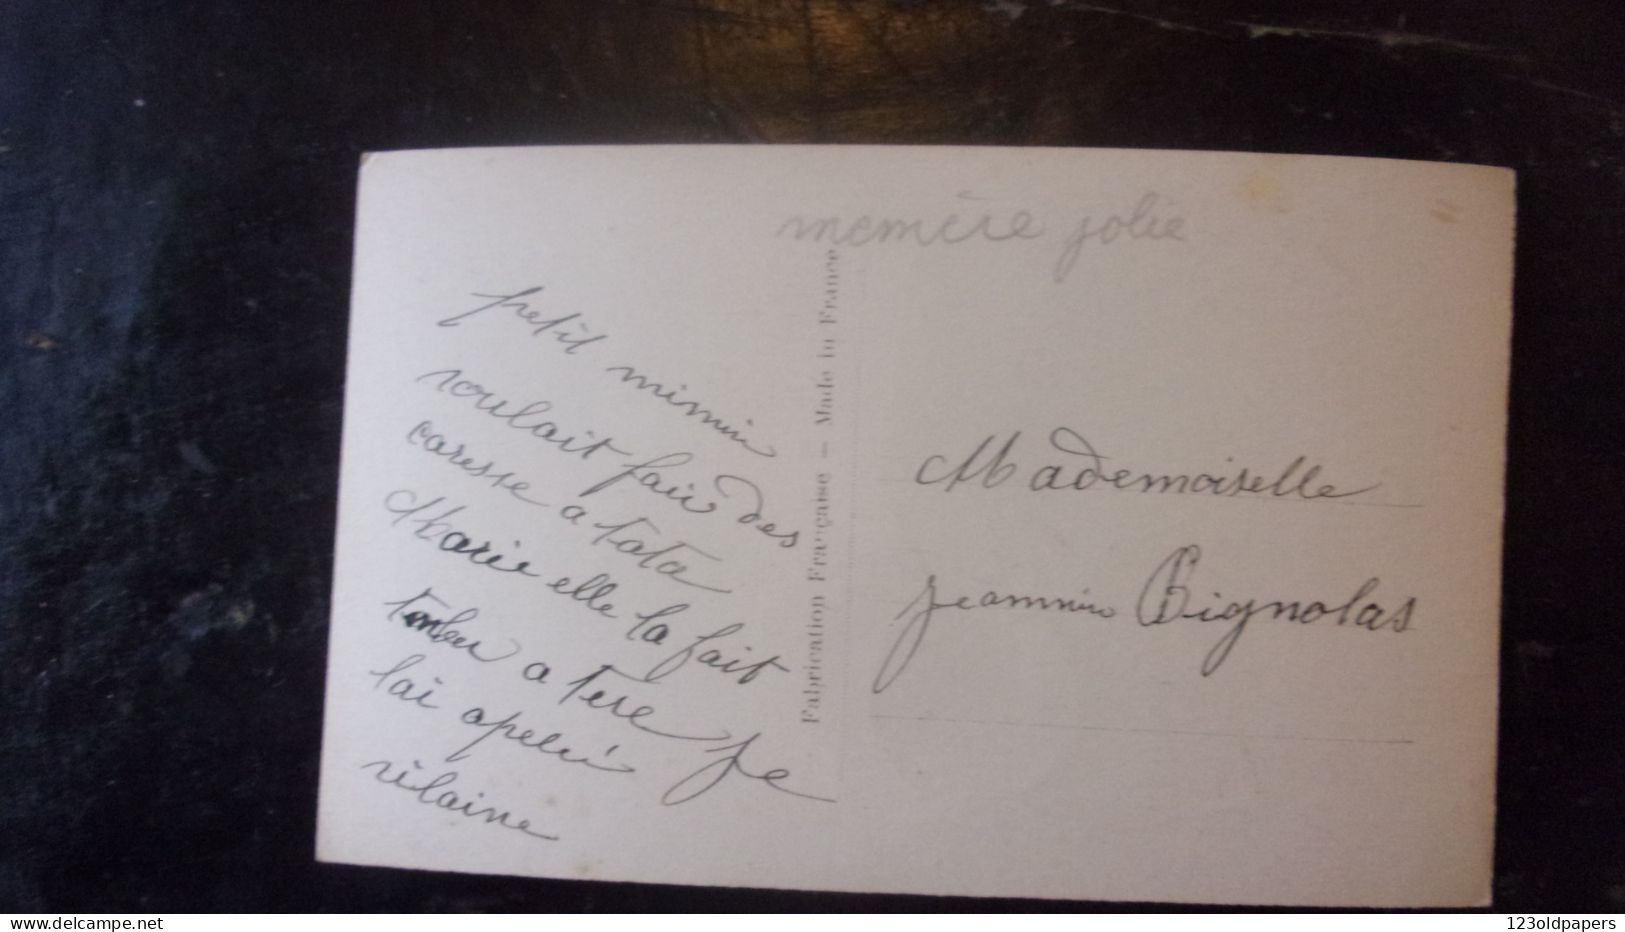 memère jolie
petit mimin
voulait fair des
caresse a tata
Marie elle la fait
tomber a tere Je
lai apelé
vilaine
Fabrication Française — Made in France
Mademoiselle
Jeannine Bignolas
delcampe.net
123oldpapers